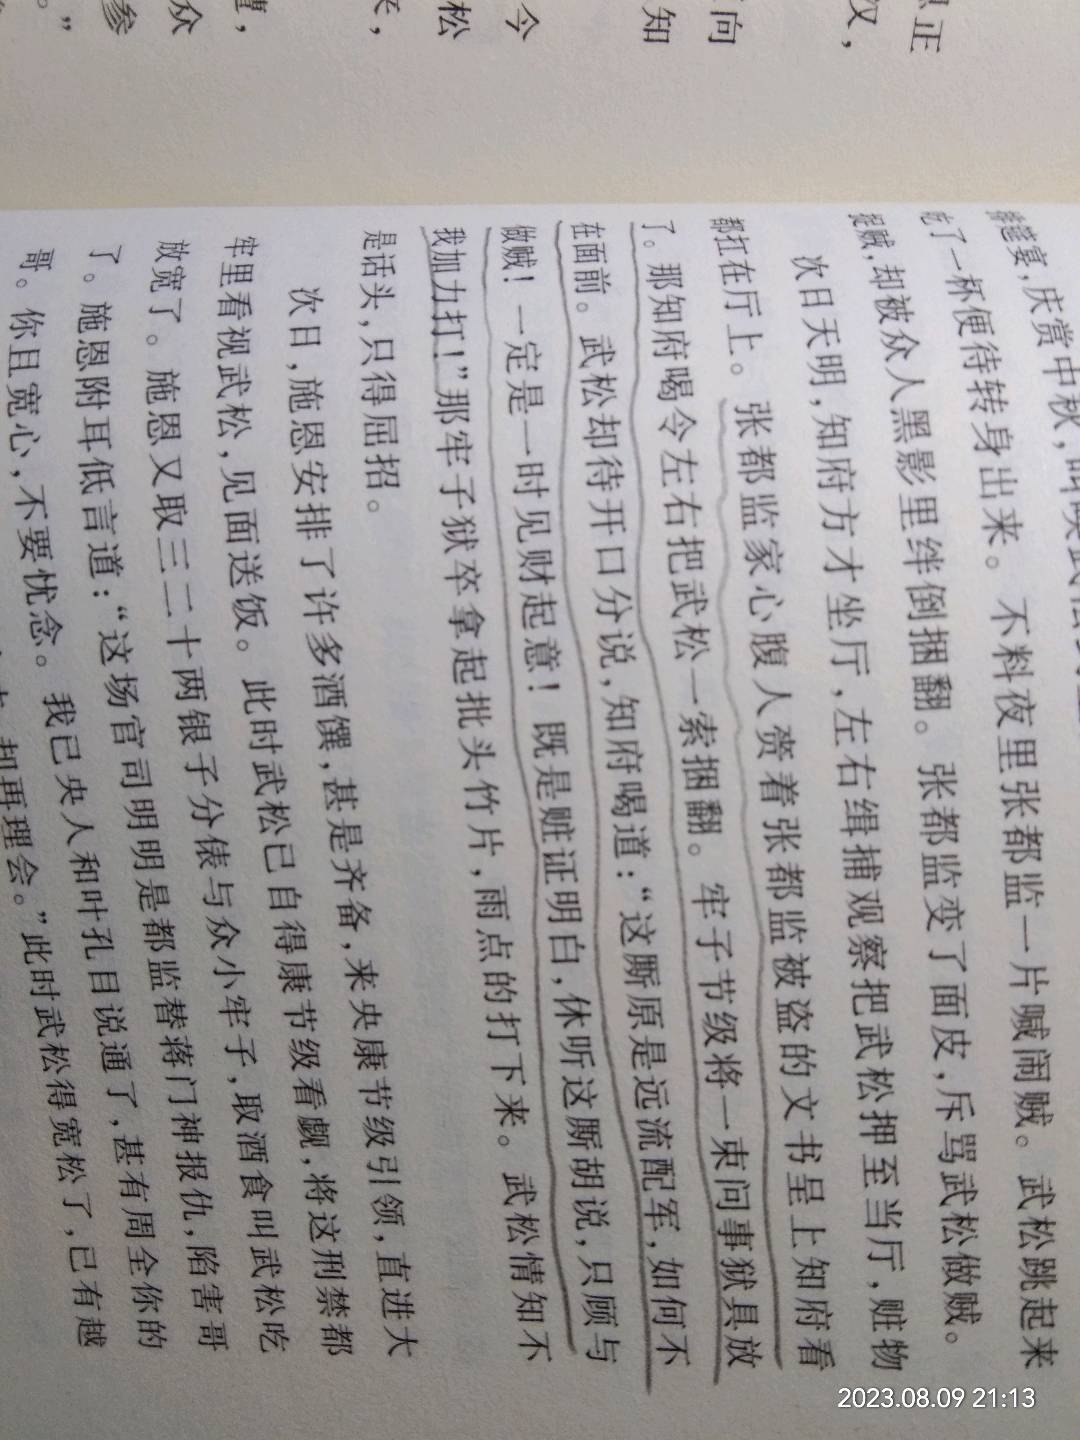 正
汉，
向
知
今
松
来，
众
参
。”
宴，庆赏中秋，叫唤武松
吃了一杯便待转身出来。不料夜里张都监一片喊闹贼。武松跳起来
捉贼，却被众人黑影里绊倒捆翻。张都监变了面皮，斥骂武松做贼。
次日天明，知府方才坐厅，左右缉捕观察把武松押至当厅，赃物
都扛在厅上。张都监家心腹人赍着张都监被盗的文书呈上知府看
了。那知府喝令左右把武松一索捆翻。牢子节级将一束问事狱具放
在面前。武松却待开口分说，知府喝道：“这厮原是远流配军，如何不
做贼！一定是一时见财起意！既是赃证明白，休听这厮胡说，只顾与
我加力打！”那牢子狱卒拿起批头竹片，雨点的打下来。武松情知不
是话头，只得屈招。
次日，施恩安排了许多酒馔，甚是齐备，来央康节级引领，直进大
牢里看视武松，见面送饭。此时武松已自得康节级看觑，将这刑禁都
放宽了。施恩又取三二十两银子分俵与众小牢子，取酒食叫武松吃
了。施恩附耳低言道：“这场官司明明是都监替蒋门神报仇，陷害哥
哥。你且宽心，不要忧念。我已央人和叶孔目说通了，甚有周全你的
却再理会。”此时武松得宽松了，已有越
2023.08.09 21:13